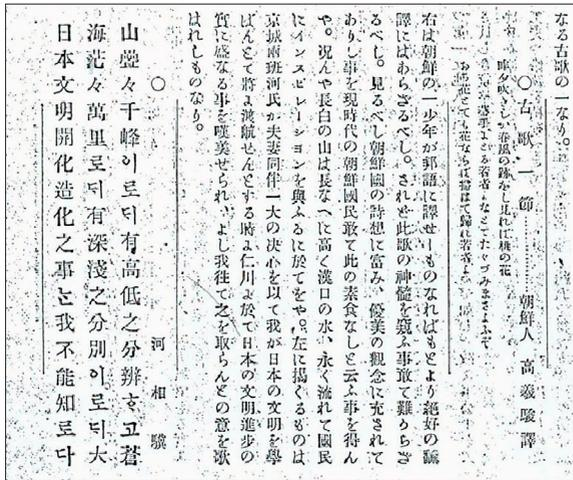 なる古歌の一なり。
○古歌一節…………朝鮮人 高羲駿譯
昨夕吹きしか春風の跡をし見れば桃の花
お庭
花とても花ならば
右は朝鮮の一少年が邦語に譯せしものなればもとより絶好の飜
譯にはあらざるべし。されど此歌の神髓を窺ふ事敢て難からざ
るべし。見るべし朝鮮國の詩想に富み、優美の觀念に充されて
ありし事を現時代の朝鮮國民敢て此の素食なしと云ふ事を得ん
や。况んや長白の山は長なへに高く漢口の水は永く流れて國民
にインスピレーションを與ふるに於てをや。左に掲ぐるものは
京城南班河氏が夫妻同伴一大の決心を以て我が日本の文明を學
ばんとて將よ渡航せんとする時よ仁川よ於て日本の文明進歩の
實に盛なる事を嘆美せられ、よし我往て之を取らんとの意を歌
はれしものなり。
○ 河相駿
山疊々千峰이로되有高低之分辨하고蒼
海茫々萬里로되有深淺之分別이로되大
日本文明開化造化之事는我不能知로다